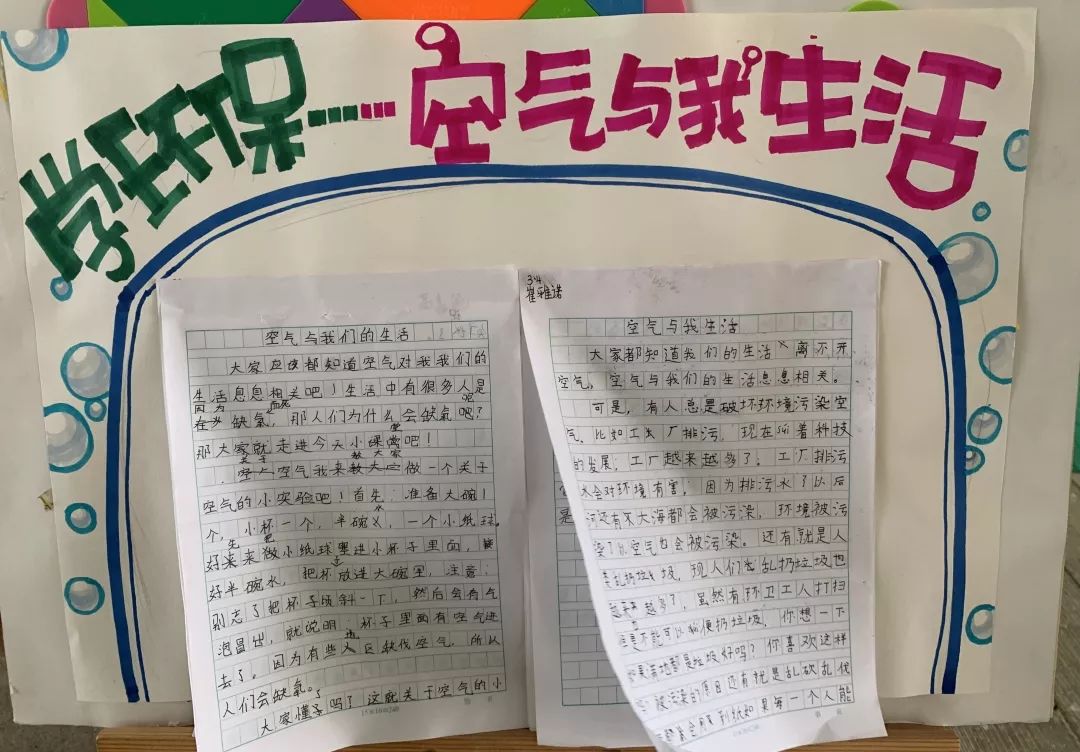 学环保……空气与我生活
空气与我们的生活
大家应该都知道空气对我我们的
生活息息相关吧！生活中有很多人是
因为 呢
在 缺氧，那人们为什么会缺氧吧？
那大家就走进今天小课堂吧！
关于 教大家
空气我来 做一个关于
空气的小实验吧！首先：准备大碗1
水
个，小杯一个，半碗 ，一个小纸球。
先 把
好来来做小纸球 进小杯子里面，
好半碗水，把杯放进大碗里，注意：
别忘了把杯子倾斜一下，然后会有气
泡冒出，就说明：杯子里面有空气进
去了。因为有些 区缺伐空气，所以
人们会缺氧。
大家懂了吗？这就关于空气的小
15×16=240
3.4
崔雅诺
空气与我生活
大家都知道我们的生活 离不开
空气，空气与我们的生活息息相关。
可是，有人总是破坏环境污染空
气，比如工 厂排污，现在 着科技
的发展；工厂越来越多了。工厂排污
水会对环境有害；因为排污水了以后
河还有 大海都会被污染，环境被污
染了 空气也会被污染。还有就是人
乱扔垃圾，现人们 乱扔垃圾也
越 越多了，虽然有环卫工人打扫
是不能可以 便扔垃圾，你想一下
满地都是垃圾好吗？你喜欢这样
被污染的原因还有就是乱砍乱伐
到纸如果每一个人能